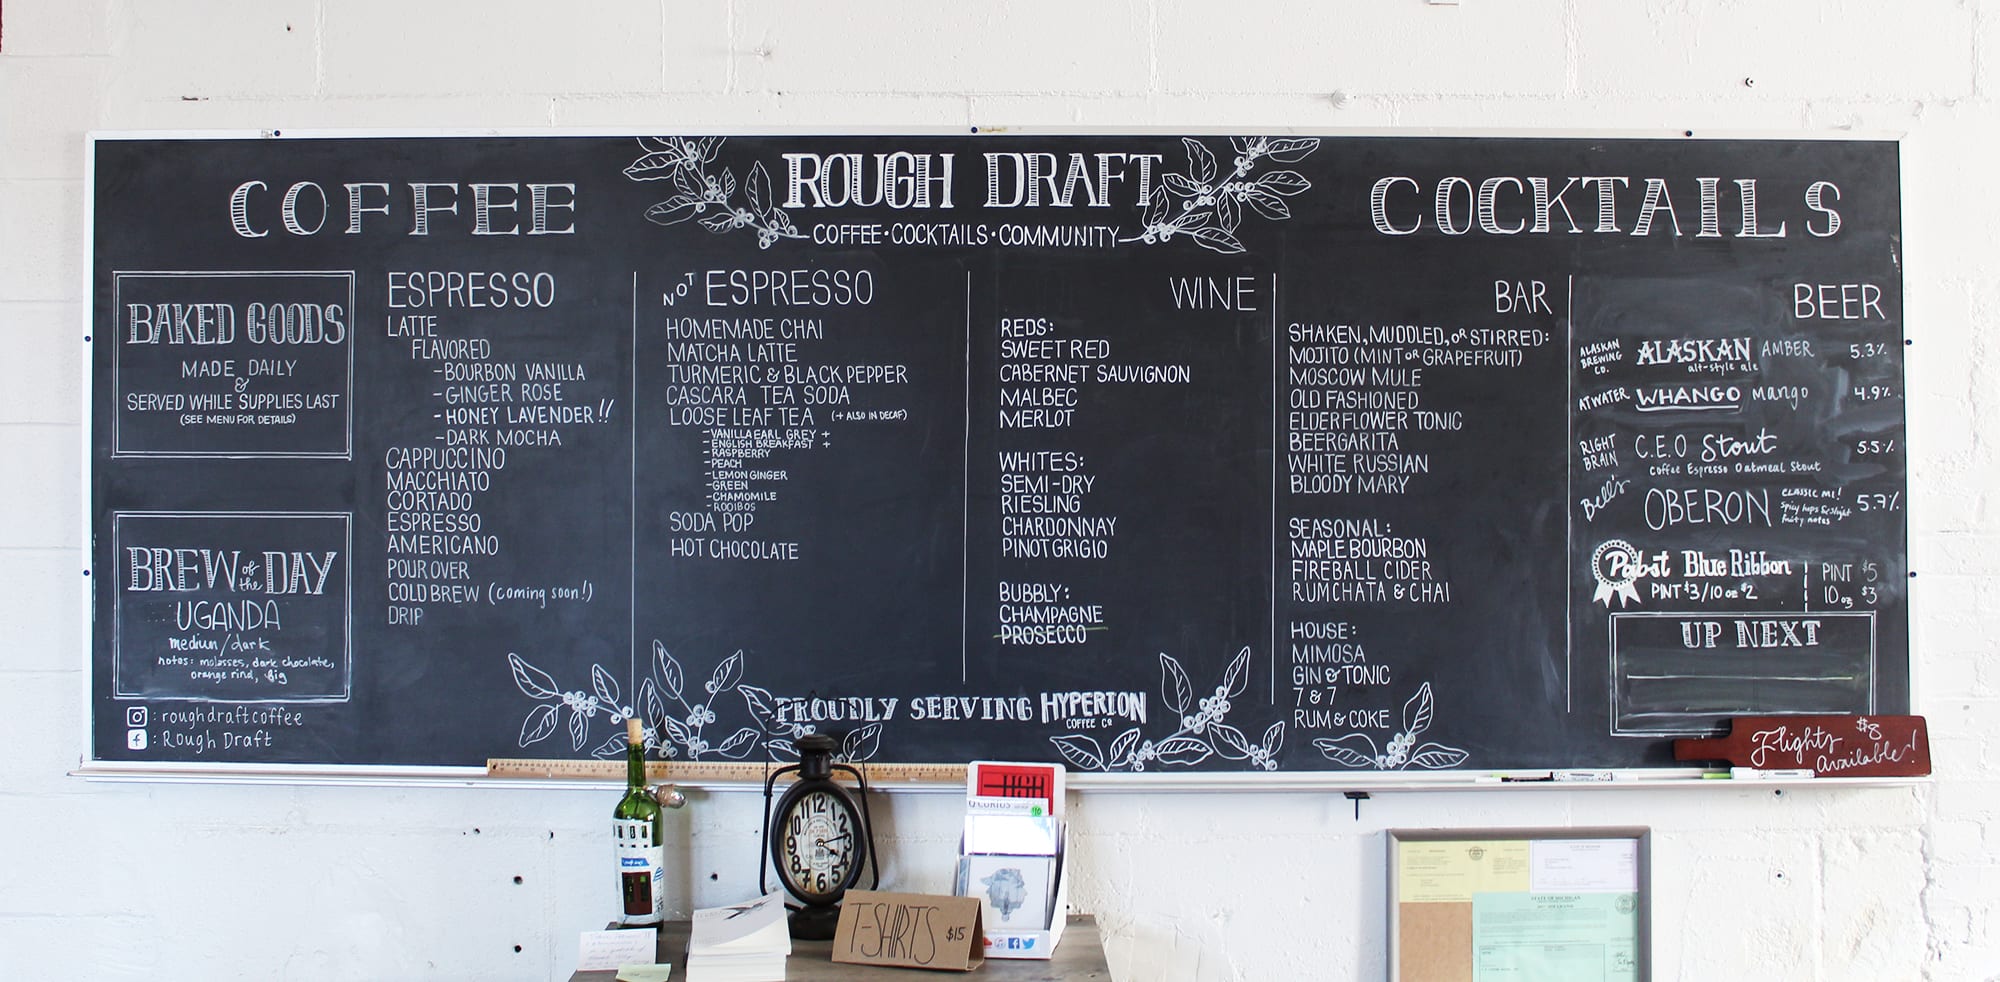 COFFEE
ROUGH DRAFT
COFFEE·COCKTAILS·COMMUNITY
COCKTAILS
BAKED GOODS
MADE DAILY
&
SERVED WHILE SUPPLIES LAST
(SEE MENU FOR DETAILS)
BREW of the DAY
UGANDA
medium/dark
notes: molasses, dark chocolate,
orange rind, fig
: roughdraftcoffee
: Rough Draft
ESPRESSO
LATTE
FLAVORED
-BOURBON VANILLA
-GINGER ROSE
-HONEY LAVENDER!!
-DARK MOCHA
CAPPUCCINO
MACCHIATO
CORTADO
ESPRESSO
AMERICANO
POUR OVER
COLD BREW (coming soon!)
DRIP
NOT ESPRESSO
HOMEMADE CHAI
MATCHA LATTE
TURMERIC & BLACK PEPPER
CASCARA TEA SODA
LOOSE LEAF TEA (+ ALSO IN DECAF)
-VANILLA EARL GREY +
-ENGLISH BREAKFAST +
-RASPBERRY
-PEACH
-LEMON GINGER
-GREEN
-CHAMOMILE
-ROOIBOS
SODA POP
HOT CHOCOLATE
WINE
REDS:
SWEET RED
CABERNET SAUVIGNON
MALBEC
MERLOT
WHITES:
SEMI-DRY
RIESLING
CHARDONNAY
PINOT GRIGIO
BUBBLY:
CHAMPAGNE
PROSECCO
PROUDLY SERVING HYPERION
COFFEE CO
BAR
SHAKEN, MUDDLED, OR STIRRED:
MOJITO (MINT OR GRAPEFRUIT)
MOSCOW MULE
OLD FASHIONED
ELDERFLOWER TONIC
BEERGARITA
WHITE RUSSIAN
BLOODY MARY
SEASONAL:
MAPLE BOURBON
FIREBALL CIDER
RUMCHATA & CHAI
HOUSE:
MIMOSA
GIN & TONIC
7 & 7
RUM & COKE
BEER
ALASKAN BREWING CO. ALASKAN AMBER 5.3%
alt-style ale
ATWATER WHANGO Mango 4.9%
RIGHT BRAIN C.E.O Stout 5.5%
Coffee Espresso Oatmeal Stout
Bell's OBERON CLASSIC MI! 5.7%
spicy hops & slight
fruity notes
Pabst Blue Ribbon
PINT $3/10 oz $2
PINT $5
10 oz $3
UP NEXT
Flights $8
available!
T-SHIRTS $15
12
11
10
9
8
7
6
5
4
3
2
1
STATE OF MICHIGAN